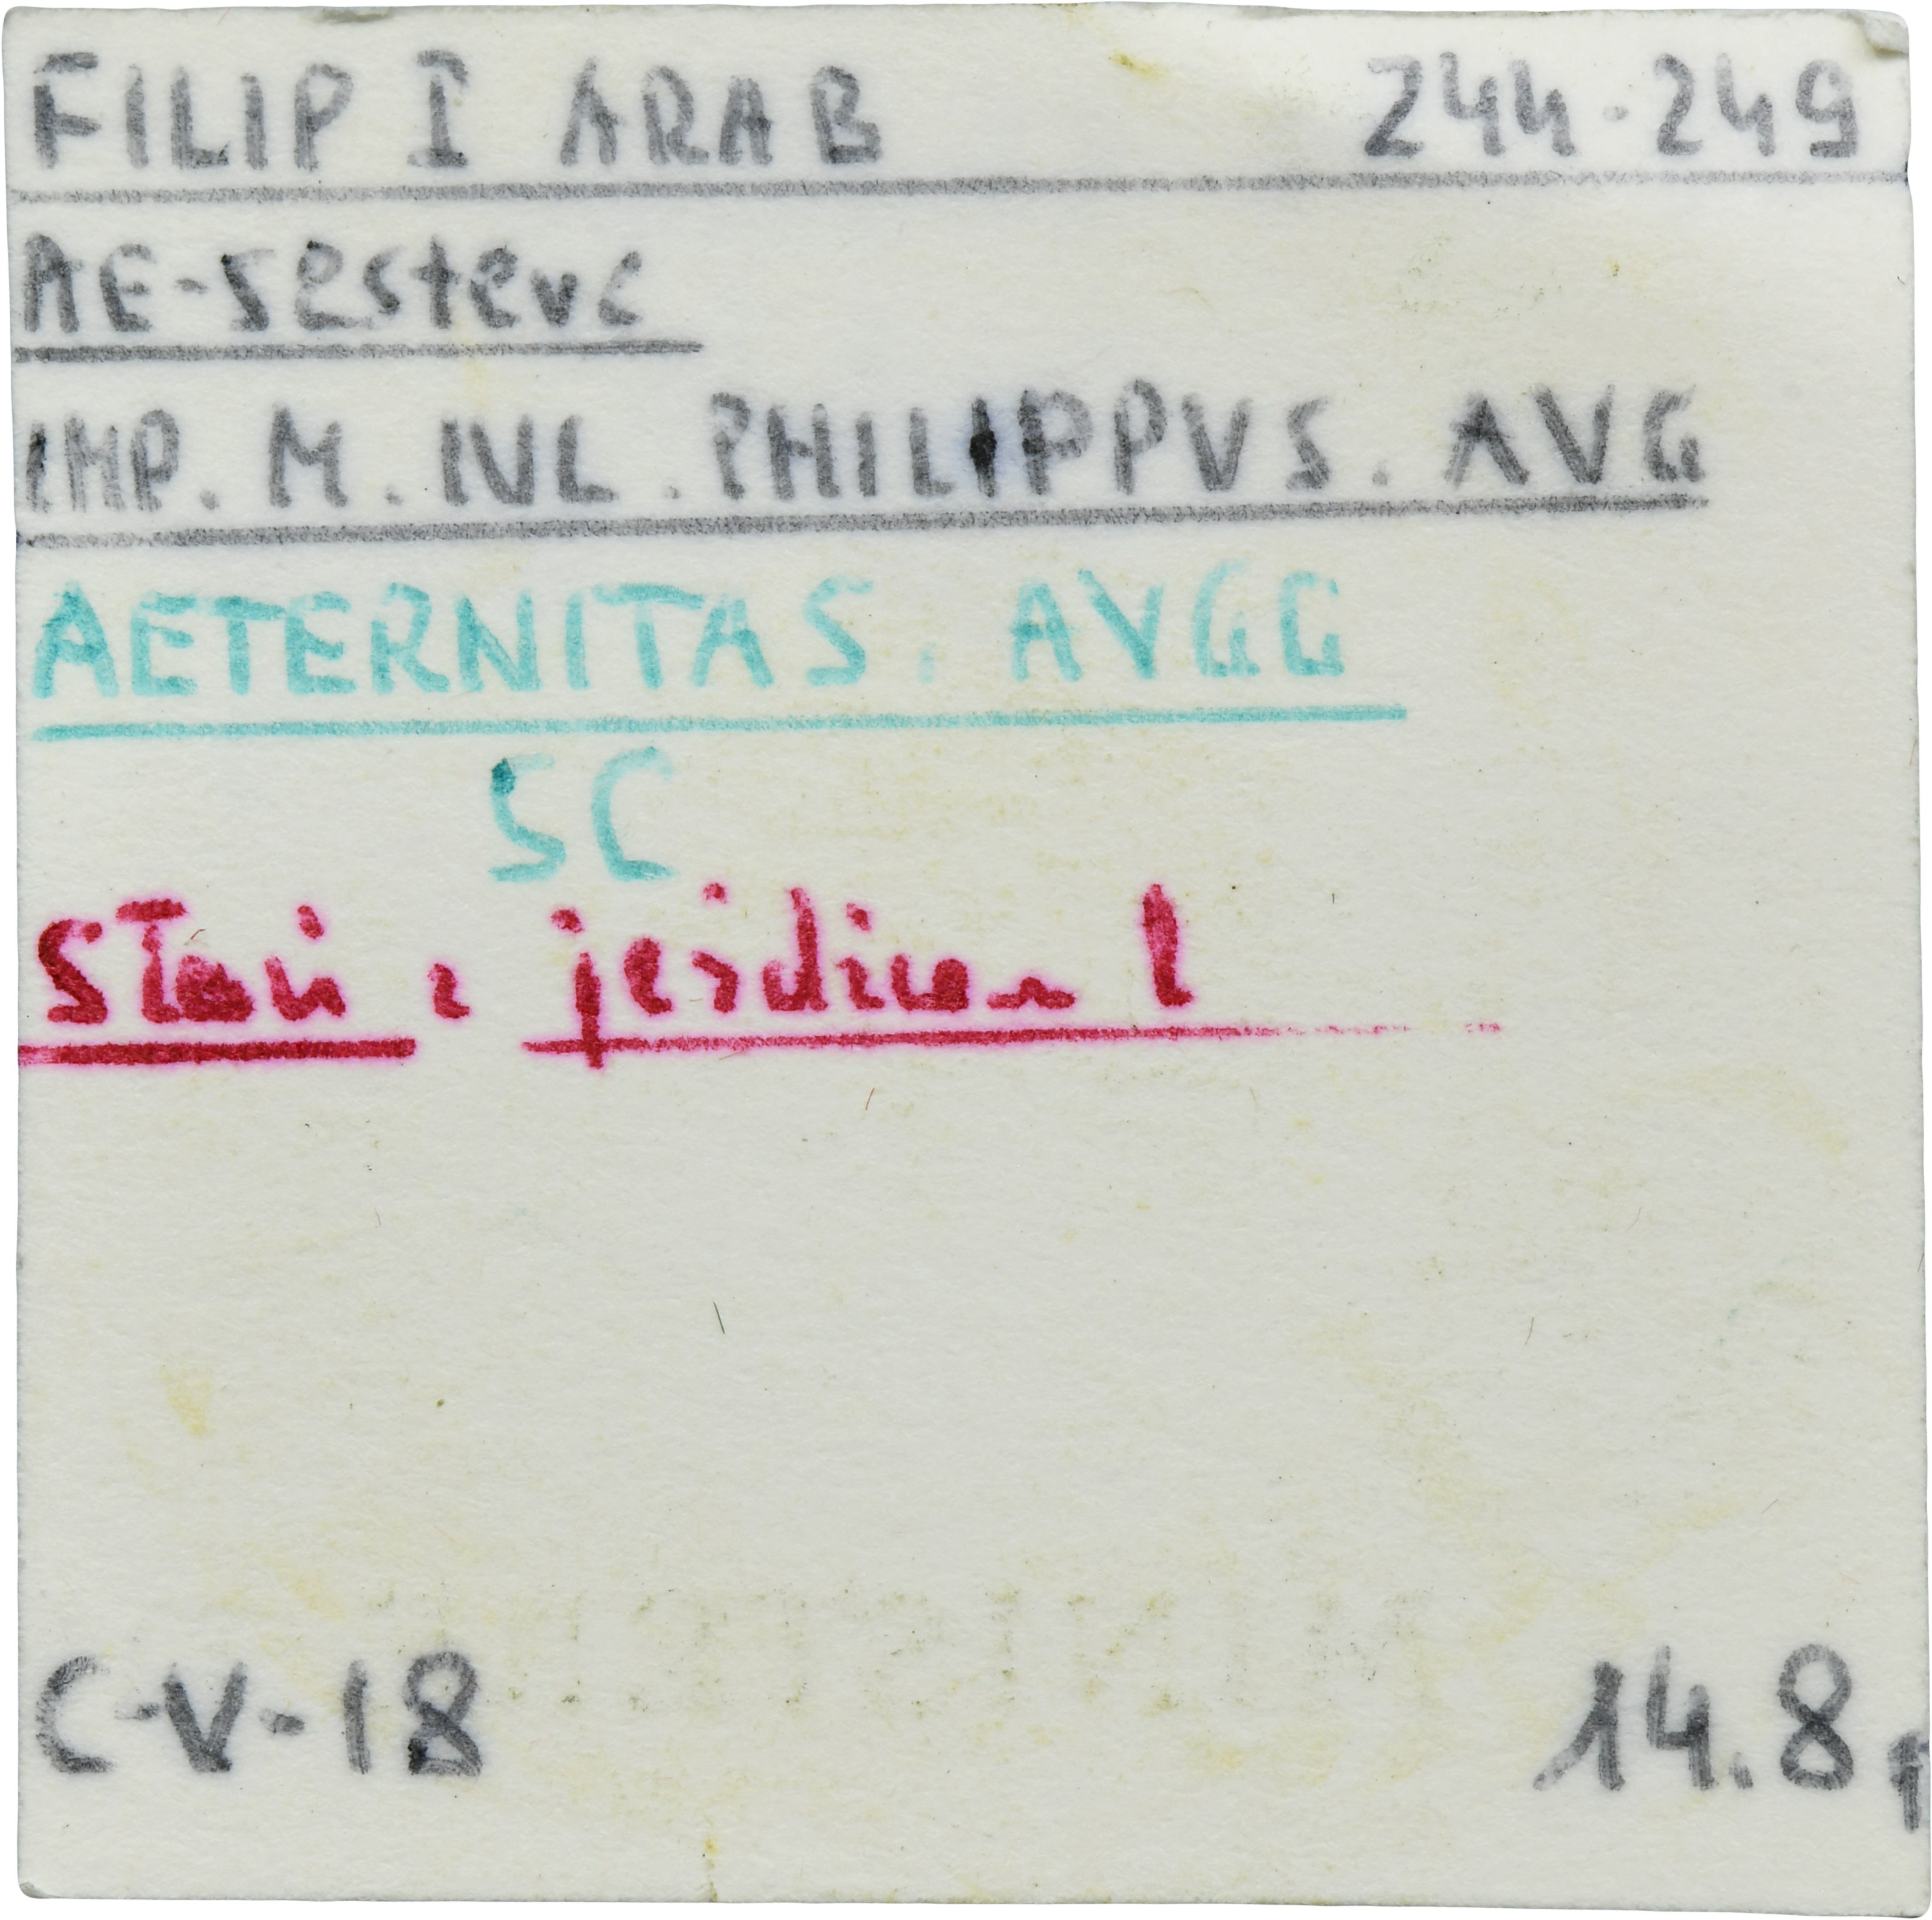 FILIP I ARAB 244-249
AE-Sesterc
IMP. M. IVL. PHILIPPVS. AVG
AETERNITAS. AVGG
SC
C-V-18 14.8